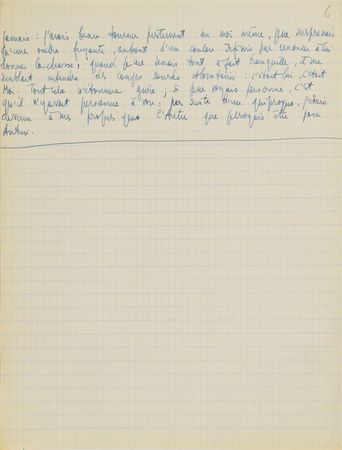 6
jamais : j'avais beau tourner prestement sur moi même, je ne surprenais
qu'une ombre fuyante, au bout d'un couloir. J'ai fini par renoncer à lui
donner la chasse ; quand je me tenais tout à fait tranquille, il me
semblait entendre des coups sourds obstinés : c'était lui. C'était
Moi. Tout cela m'étonnait guère ; si je ne voyais personne, c'est
qu'il n'y avait personne à voir : par suite d'un quiproquo, j'étais
devenu à mes propres yeux l'Autre que je croyais être pour
Autrui.